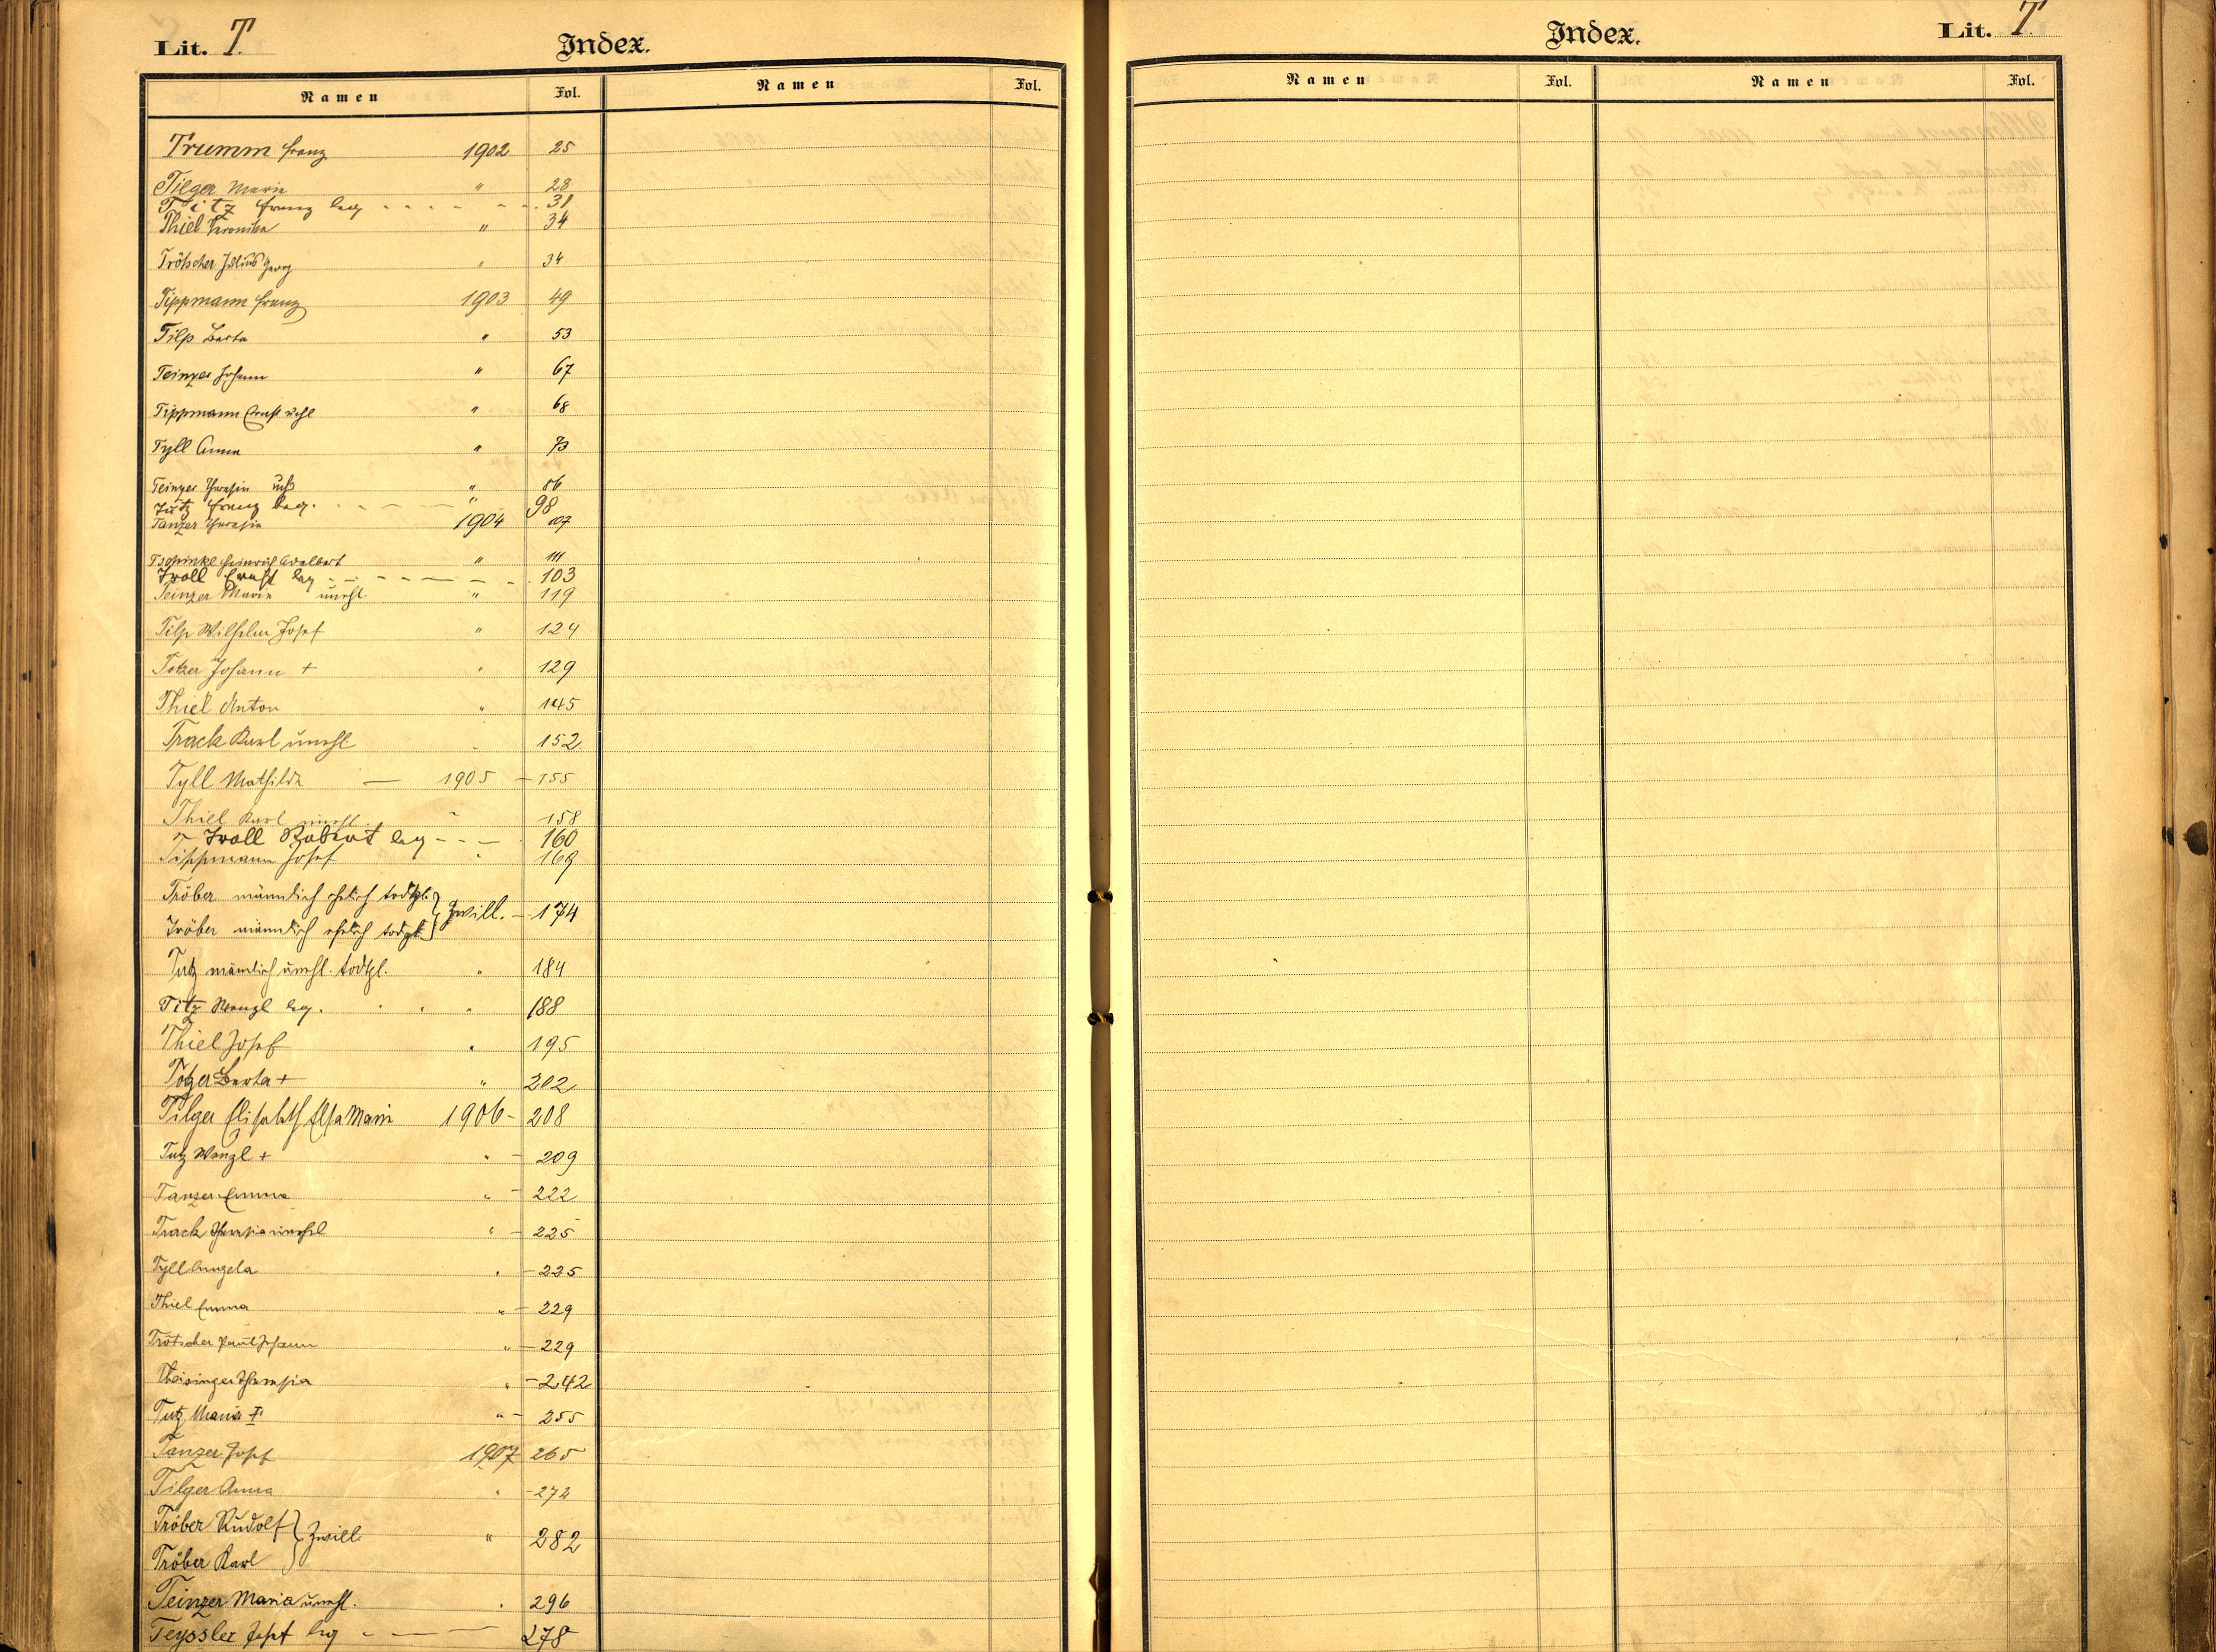 Lit. T.
Index.
Namen Fol. Namen Fol.
Trumm Franz 1902 25
Tilger Maria " 28
Titz Franz leg - - - - - - 31
Thiel Veronika " 34
Trötscher Julius Georg " 34
Tippmann Franz 1903 49
Tilp Berta " 53
Teinzer Johann " 67
Tippmann Ernst uehl " 68
Tyll Anna " 73
Teinzer Theresia " 86
Tutz Franz leg. - - - " 98
Tanzer Theresia 1904 107
Tschinkl Heinrich Adalbert " 111
Troll Ernst leg - - - - - - 103
Teinzer Maria unehl. " 119
Tilp Wilhelm Josef " 124
Toker Johann + " 129
Thiel Anton " 145
Track Karl unehl " 152
Tyll Mathilda — 1905 - 155
Thiel Karl unehl. " 158
Troll Robert leg - - - 160
Tippmann Josef " 169
Tröber männlich ehelich todtgb. } Zwill. - 174
Tröber männlich ehelich todtgb. }
Tutz männlich unehl. todtgb. " 184
Titz Wenzl leg. " 188
Thiel Josef " 195
Totzer Berta + " 202
Tilger Elisabeth Elsa Maria 1906 - 208
Tutz Wenzl + " - 209
Tanzer Emma " - 222
Track Theresia unehel " - 225
Tyll Angela " - 225
Thiel Emma " - 229
Trötscher Paul Johann " - 229
Theisinger Theresia " - 242
Tutz Maria + " - 255
Tanzer Josef 1907 265
Tilger Anna " - 272
Tröber Rudolf } Zwill. " 282
Tröber Karl }
Teinzer Maria unehl. " 296
Teyssler Josef leg - — — 278
Index.
Lit. T.
Namen Fol. Namen Fol.